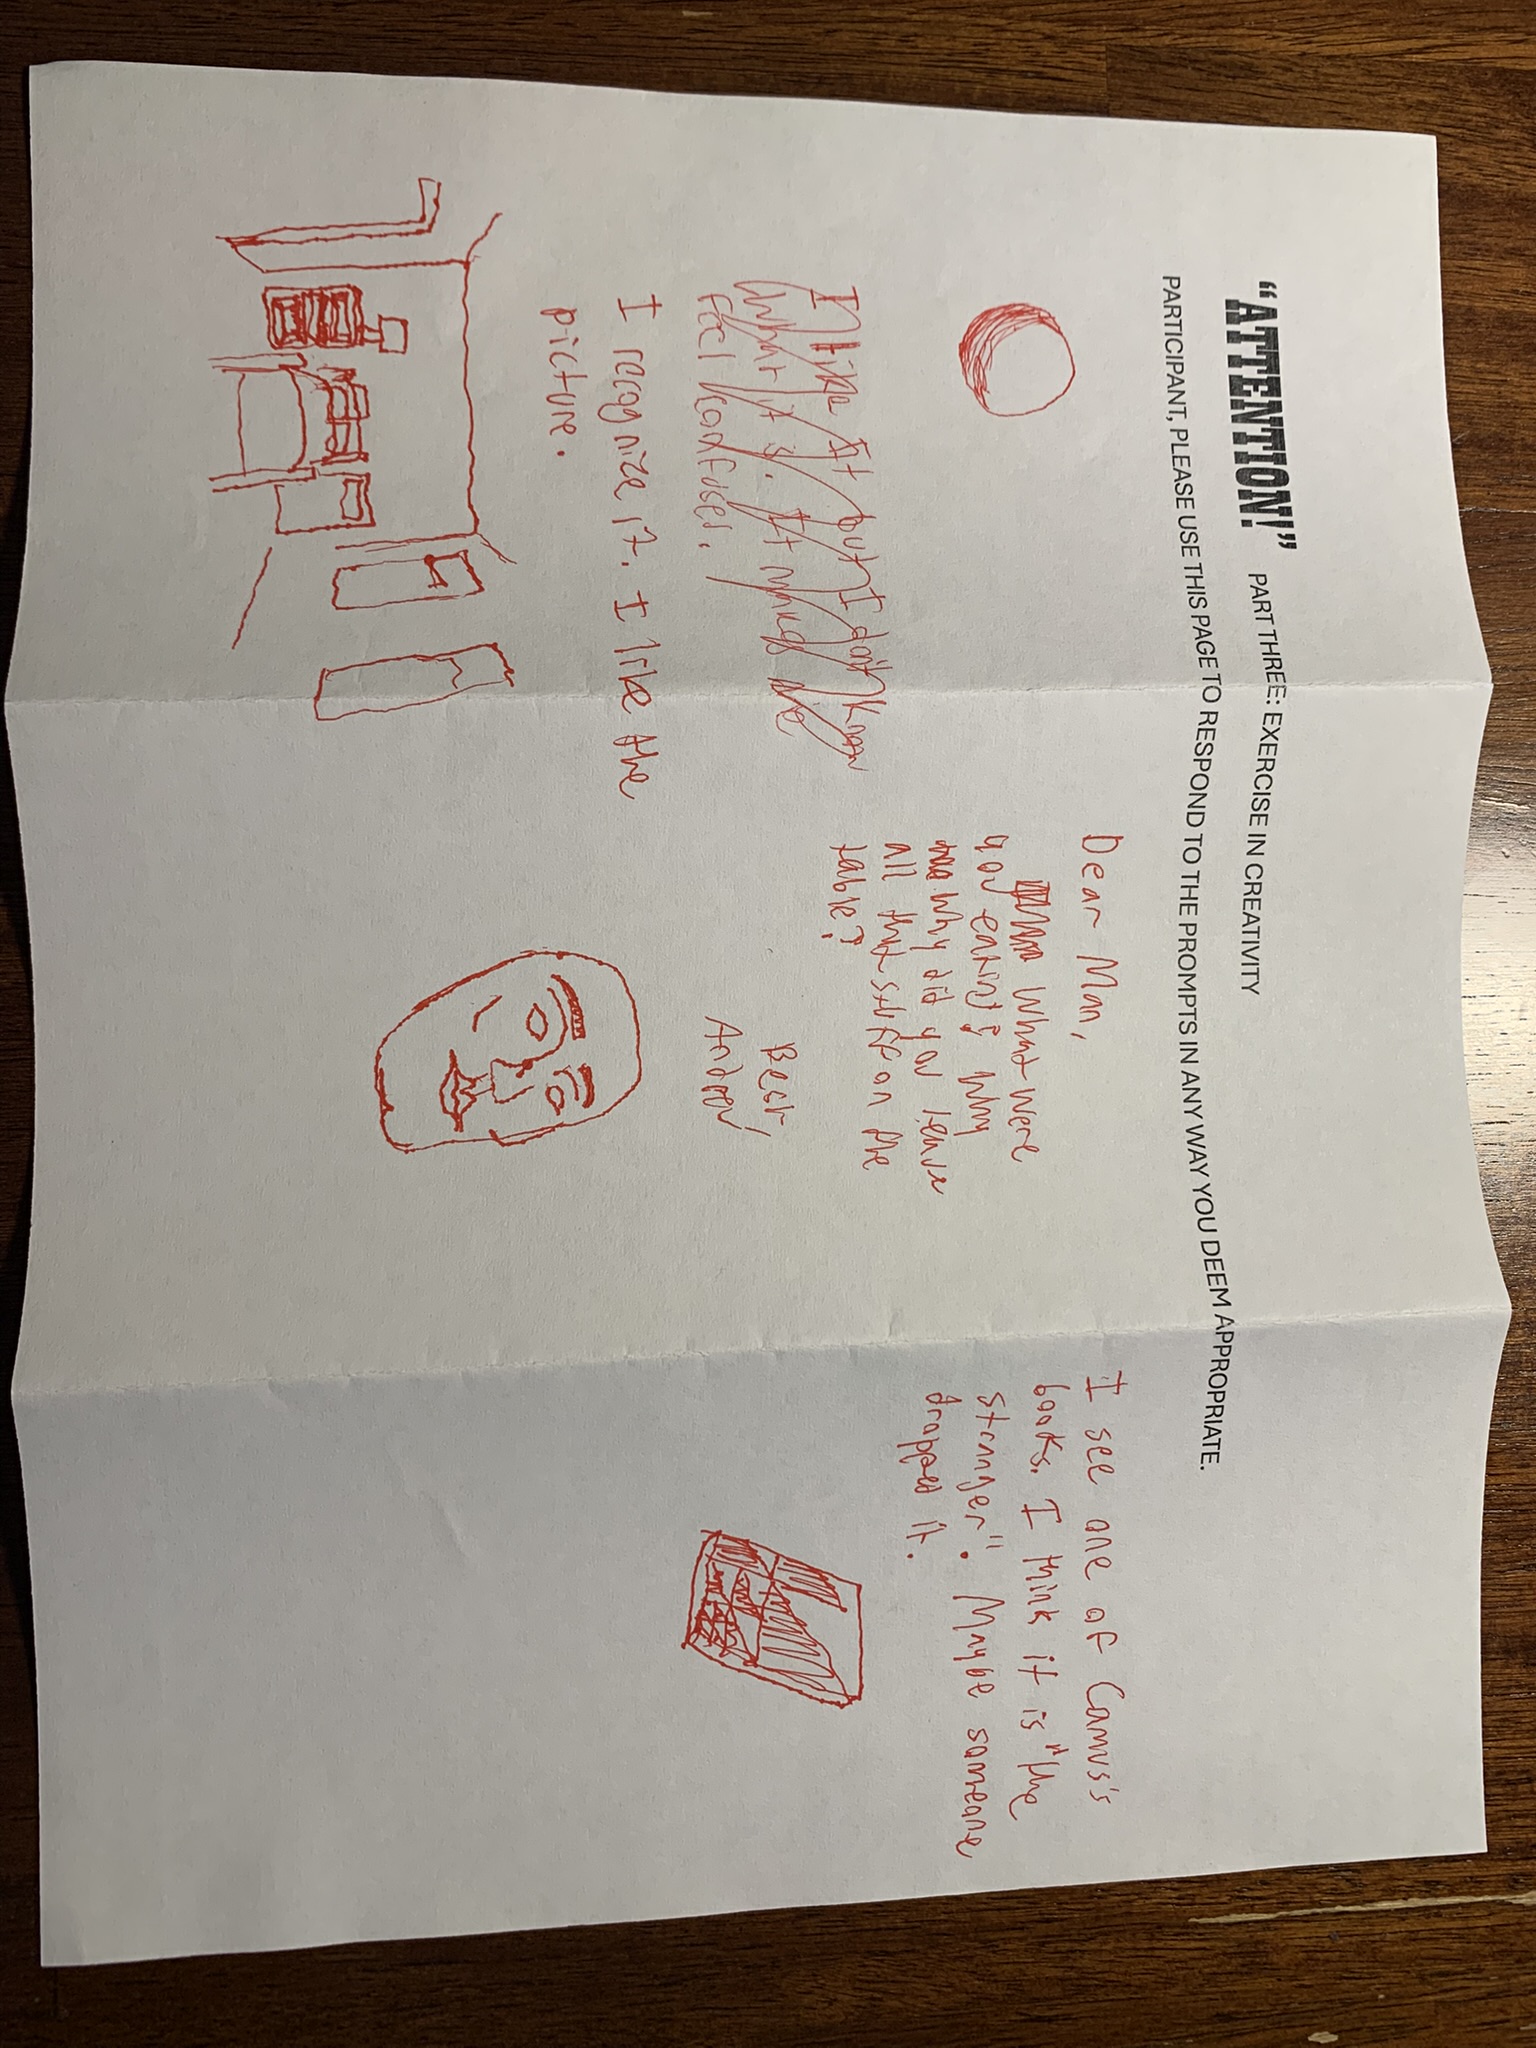 “ATTENTION!” PART THREE: EXERCISE IN CREATIVITY
PARTICIPANT, PLEASE USE THIS PAGE TO RESPOND TO THE PROMPTS IN ANY WAY YOU DEEM APPROPRIATE.
I like it but I don't know
what it is. It makes me
feel confused.
I recognize it. I like the
picture.
Dear Man,
What were
you eating? Why
Why did you leave
all that stuff on the
table?
Best,
Andrew
I see one of Camus's
books. I think it is "the
stranger". Maybe someone
dropped it.